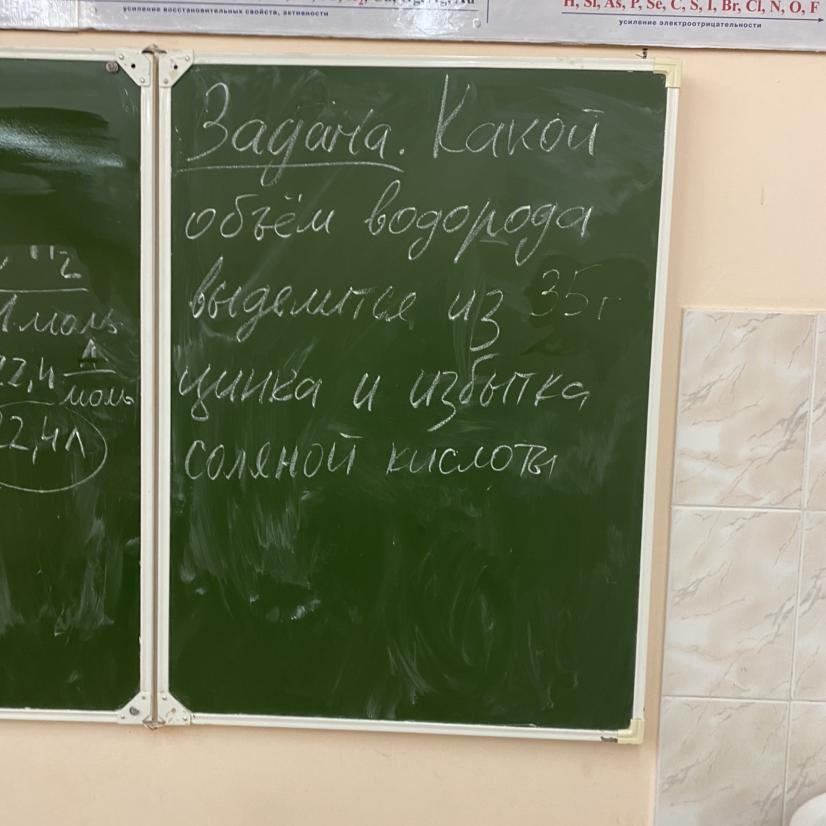 усиление восстановительных свойств, активности
H, Si, As, P, Se, C, S, I, Br, Cl, N, O, F
усиление электроотрицательности
H₂
1 моль
22,4 л/моль
22,4л
Задача. Какой
объём водорода
выделится из 35г
цинка и избытка
соляной кислоты